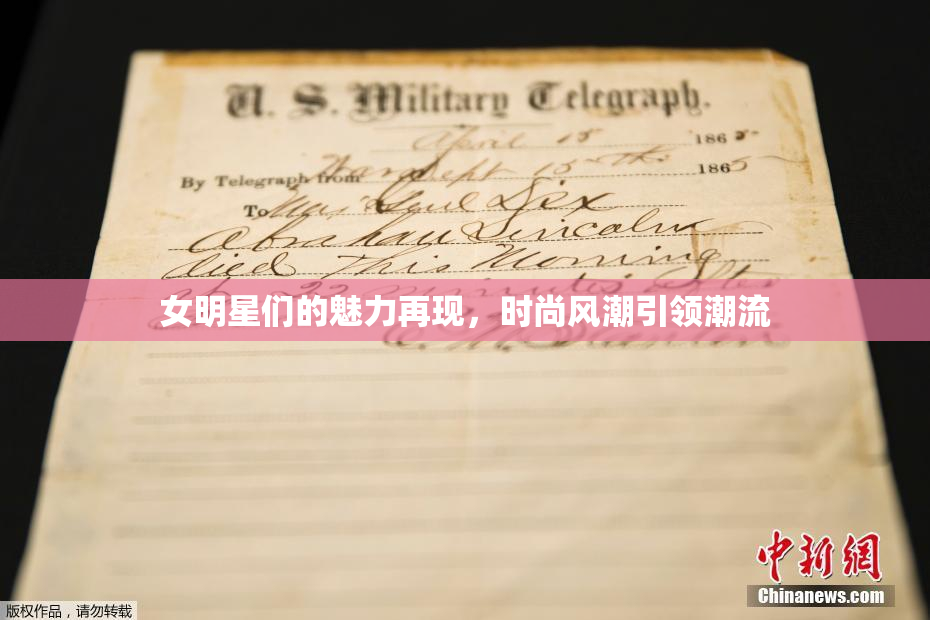 U. S. Military Telegraph.
April 15 1865
By Telegraph from War Dept 15th 1865
To Maj Genl Dix
Abraham Lincoln
died This Morning
at 22 minutes after
女明星们的魅力再现，时尚风潮引领潮流
E. M. Stanton
中新网
Chinanews.com
版权作品，请勿转载